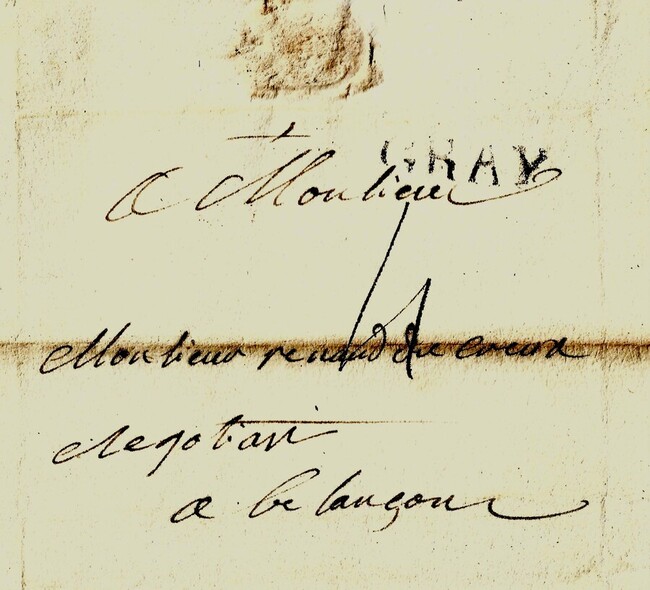 GRAY
a Monsieur
4
Monsieur renaud du creux
Negotiant
a besançon